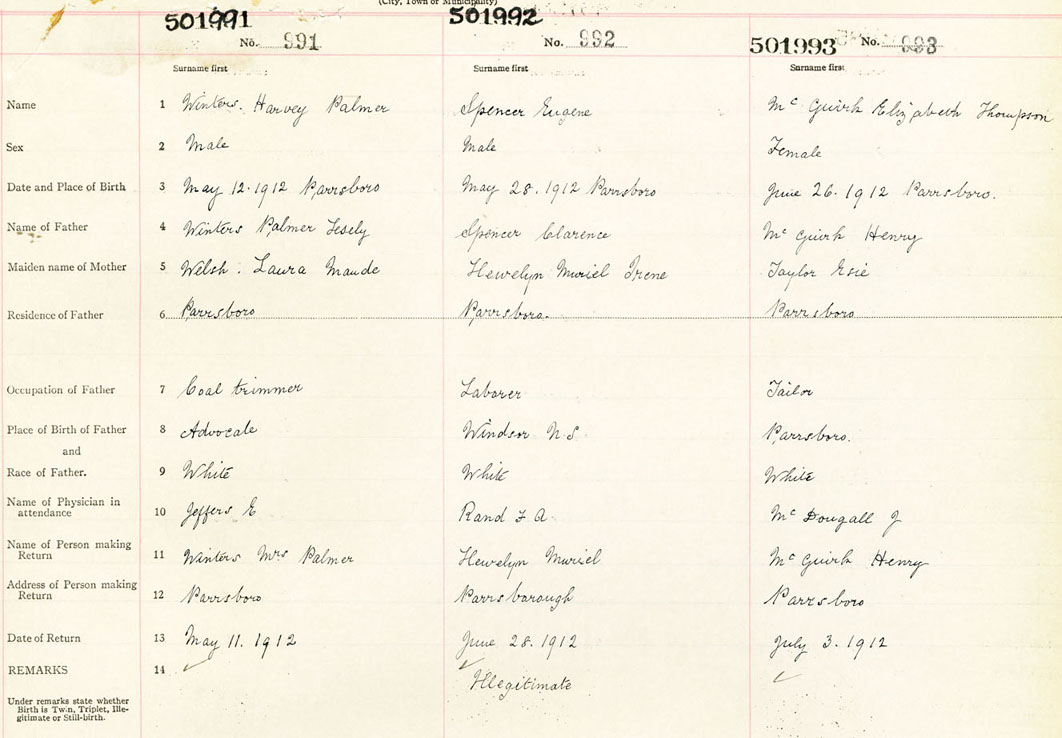 (City, Town or Municipality)
501991 501992
No. 991 No. 992 501993 No. 993
Surname first Surname first Surname first
Name 1 Winters. Harvey Palmer Spencer Eugene Mc Guirk Elizabeth Thompson
Sex 2 Male Male Female
Date and Place of Birth 3 May 12. 1912 Parrsboro May 28. 1912 Parrsboro June 26. 1912 Parrsboro.
Name of Father 4 Winters Palmer Spencer Clarence Mc Guirk Henry
Maiden name of Mother 5 Welsh. Laura Maude Hewelyn Muriel Irene Taylor Esie
Residence of Father 6 Parrsboro Parrsboro. Parrsboro
Occupation of Father 7 Coal trimmer Laborer Tailor
Place of Birth of Father 8 Advocate Windsor N S. Parrsboro.
and
Race of Father. 9 White White White
Name of Physician in
attendance 10 Jeffers E Rand F A Mc Dougall J
Name of Person making
Return 11 Winters Mrs Palmer Hewelyn Muriel Mc Guirk Henry
Address of Person making
Return 12 Parrsboro Parrsborough Parrsboro
Date of Return 13 May 11. 1912 June 28. 1912 July 3. 1912
REMARKS 14 Illegitimate
Under remarks state whether
Birth is Twin, Triplet, Ille-
gitimate or Still-birth.